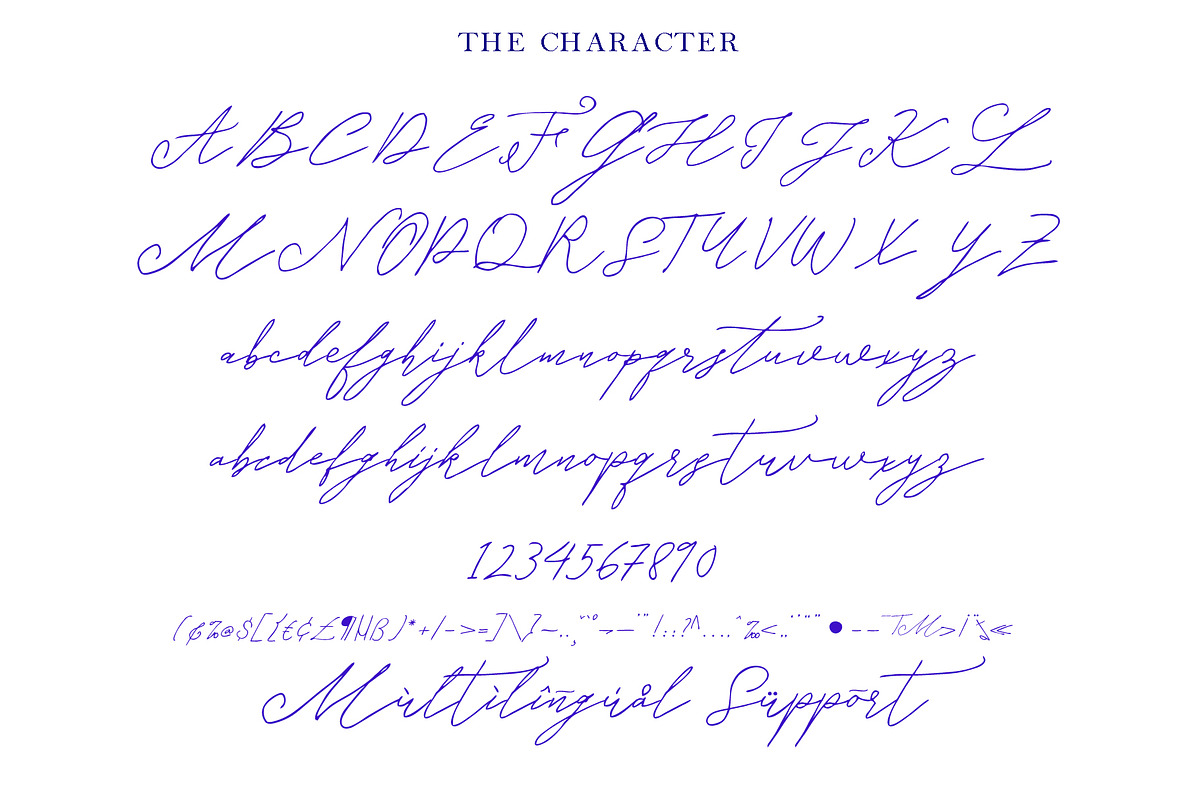 THE CHARACTER
ABCDEFGHIJKL
MNOPQRSTUVWXYZ
abcdefghijklmnopqrstuvwxyz
abcdefghijklmnopqrstuvwxyz
1234567890
Mùltìlîñgúål Süppõrt